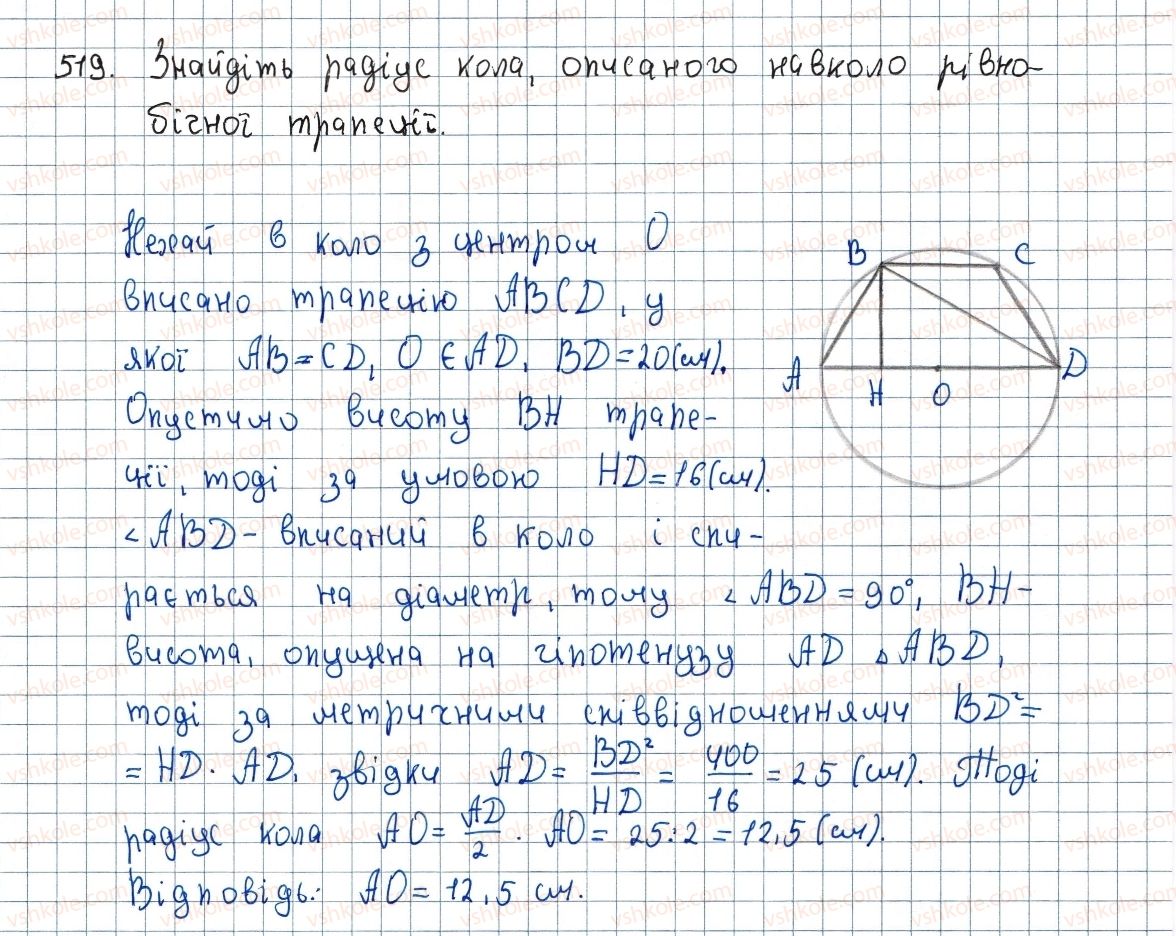 519. Знайдіть радіус кола, описаного навколо рівно-
бічної трапеції.
Нехай в коло з центром O
вписано трапецію ABCD, у
якої AB = CD, O ∈ AD, BD = 20 (см).
Опустимо висоту BH трапе-
ції, тоді за умовою HD = 16 (см).
∠ABD - вписаний в коло і спи-
рається на діаметр, тому ∠ABD = 90°, BH -
висота, опущена на гіпотенузу AD △ABD,
тоді за метричними співвідношеннями BD² =
= HD · AD, звідки AD = BD²/HD = 400/16 = 25 (см). Тоді
радіус кола AO = AD/2. AO = 25:2 = 12,5 (см).
Відповідь: AO = 12,5 см.
B C
A H O D
vshkole.com